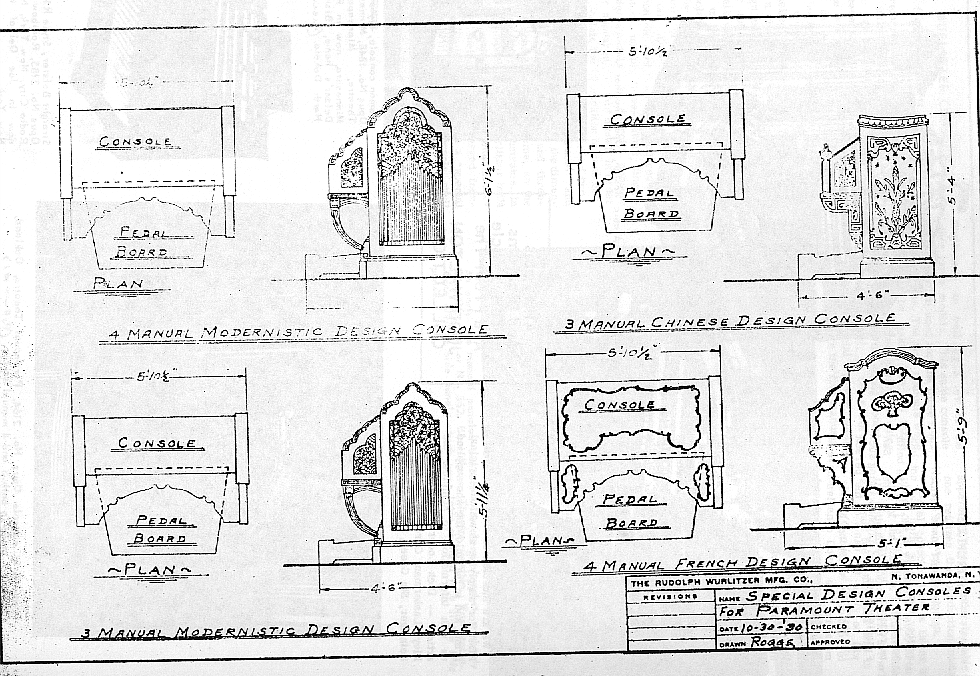 5'-10½"
CONSOLE
PEDAL
BOARD
PLAN
6'-1½"
4 MANUAL MODERNISTIC DESIGN CONSOLE
5'-10½"
CONSOLE
PEDAL
BOARD
~PLAN~
5'-4"
4'-6"
3 MANUAL CHINESE DESIGN CONSOLE
5'-10½"
CONSOLE
PEDAL
BOARD
~PLAN~
5'-11½"
4'-6"
3 MANUAL MODERNISTIC DESIGN CONSOLE
5'-10½"
CONSOLE
PEDAL
BOARD
~PLAN~
5'-9"
5'-1"
4 MANUAL FRENCH DESIGN CONSOLE
THE RUDOLPH WURLITZER MFG. CO., N. TONAWANDA, N.
REVISIONS
NAME SPECIAL DESIGN CONSOLES
FOR PARAMOUNT THEATER
DATE 10-30-'30 CHECKED
DRAWN APPROVED